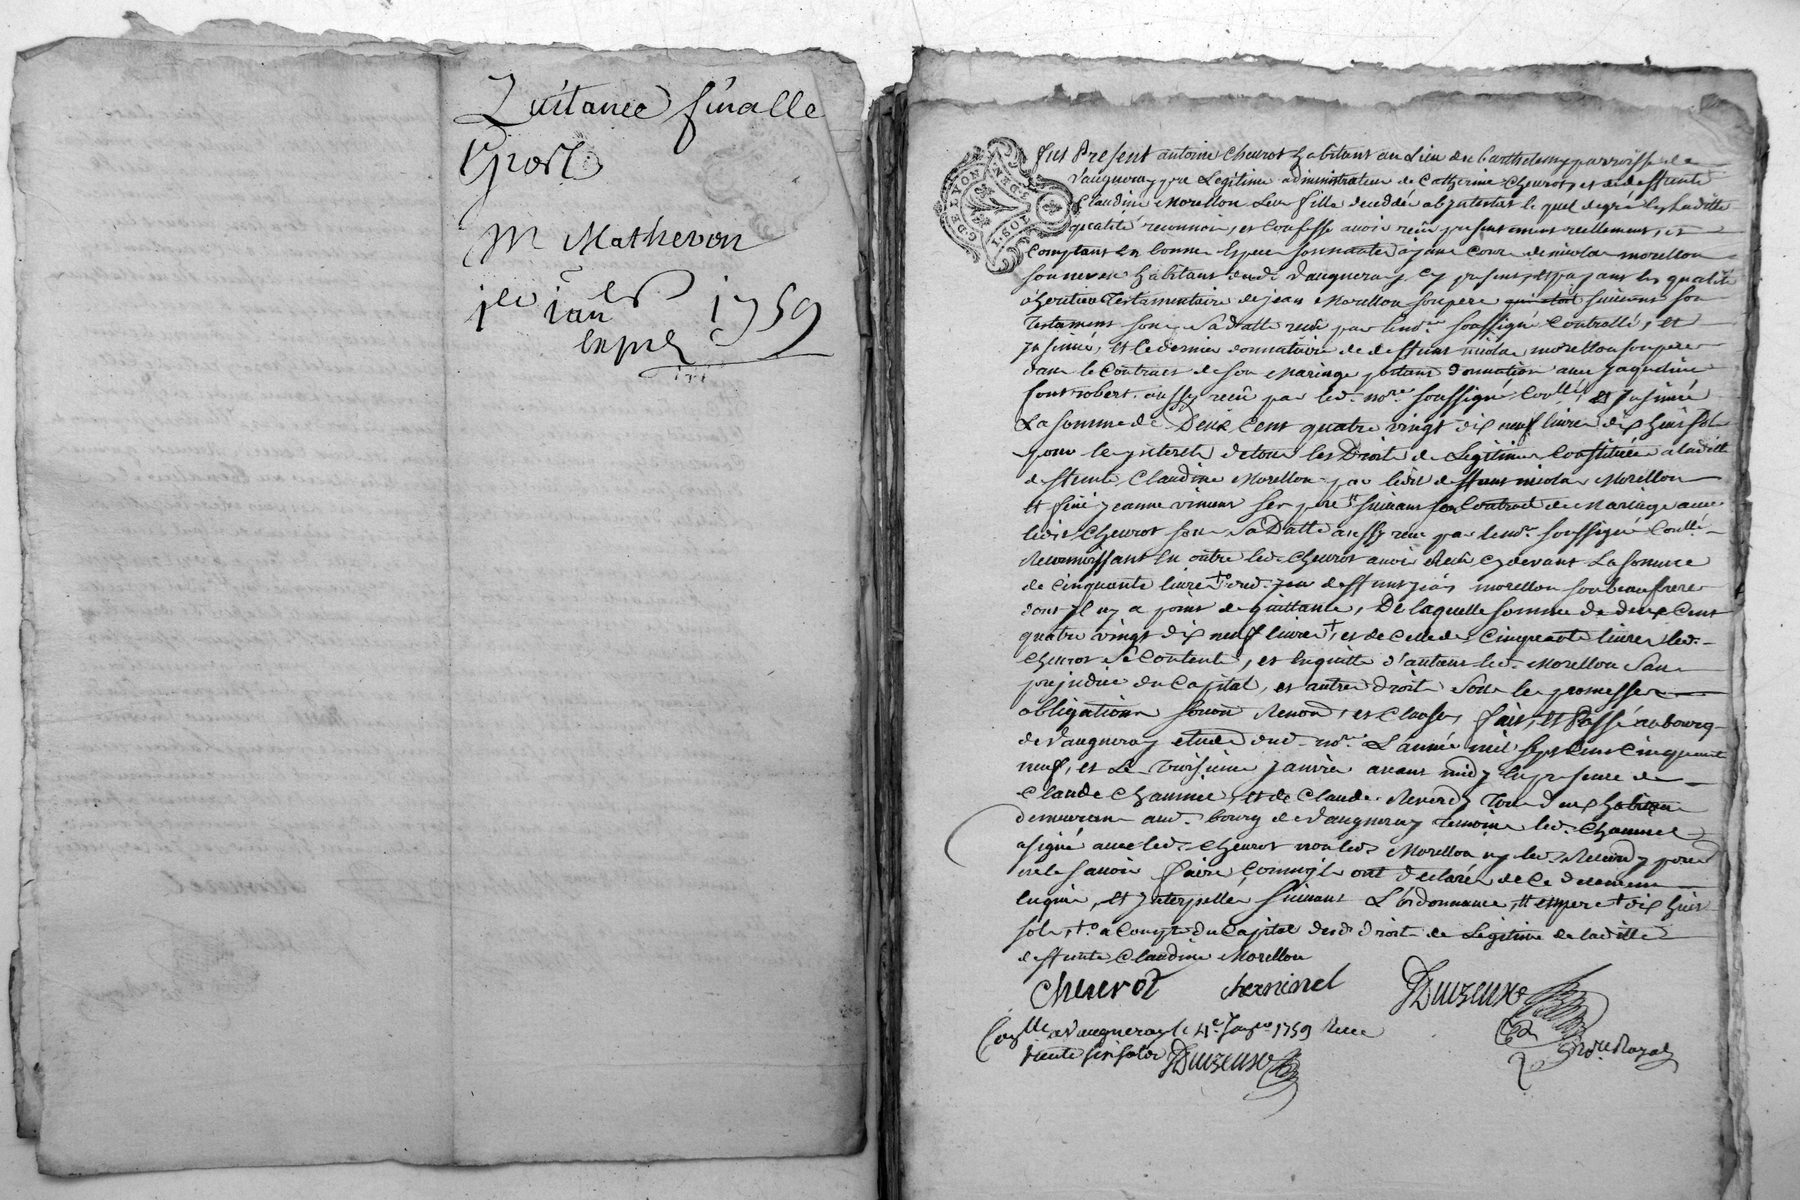 Quitance finalle
port
M Mathevon
1er Janer 1759
expié
G. DE LYON
2. DEN.
Fut Present antoine Chevrot habitant au Lieu de barthelemy parroisse de
Vaugneray pere Legitime administrateur de Catherine Chevrot, et de deffunte
Claudine Morellon Leur fille decedée abjntestat le quel de gre en Laditte
qualité reconnoit, et Confesse avoir recû presentement reellement, et
Comptant en bonne Espece sonnante ayant Cour de nicolas morellon
son neveu habitant dud. Vaugneray cy present, et payant en qualité
d'heritier Testamentaire de jean Morellon son pere suivant son
Testament sous sa datte recu par led. nore soussigné Controllé, et
Jnsinué, et Ce dernier donnataire de deffunt nicolas morellon son pere
dans le Contract de son Mariage portant donnation avec Jaqueline
font robert aussy recû par led. nore. soussigné Coullé, et Jnsinué
La somme de Deux Cent quatre vingt dix neuf livres dix huit sols
pour les jnterets de tous les Droits de Legitime Constituée a laditte
deffunte Claudine Morellon par ledit deffunt nicolas Morellon
et feüe jeanne vincent ses pere suivant son Contract de Mariage avec
ledit Chevrot sous sa Datte aussy recu par led. nore. soussigné Coullé.
Reconnoissant en outre led. Chevrot avoir Recû cydevant La somme
de Cinquante livres dud. deffunt jean morellon son beaufrere
dont jl ny a point de quittance, De laquelle somme de deux Cent
quatre vingt dix neuf livres, et de Celle de Cinquante livres led.
Chevrot se Contente, et en quitte d'autant led. Morellon sans
prejudice du Capital, et autres droits sous les promesses
obligations soum. Renon. et Clauses, fait, et Passé au bourg
de Vaugneray etude dud. nore. L'année mil sept Cent Cinquante
neuf, et Le troisieme Janvier avant midy en presence de
Claude Chaminel, et de Claude Reverdy Tous deux
demeurans aud. bourg de Vaugneray temoins led. Chaminel
a signé avec led. Chevrot non led. Morellon ny led. Reverdy pour
ne le savoir faire Comme jls ont declaré de Ce deuement
enquis, et Jnterpellés suivant L'ordonnance, dix huit
sols, a Compte du Capital desd. droits de Legitime de laditte
deffunte Claudine Morellon
Chevrot Cheminel Duzeux
Coullé a Vaugneray le 4e Janer 1759 Recu
trente six sols Duzeux Nore Royal